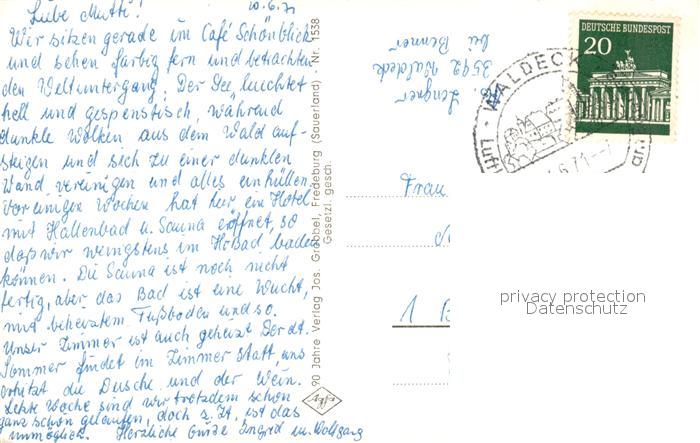 10.6.71
Liebe Mutti!
Wir sitzen gerade im Café Schönblick
und sehen farbig fern und betrachten
den Weltuntergang. Der See, leuchtet
hell und gespenstisch, während
dunkle Wolken aus dem Wald auf-
steigen und sich zu einer dunklen
Wand vereinigen und alles einhüllen.
Vor einigen Wochen hat hier ein Hotel
mit Hallenbad u. Sauna eröffnet, so
daß wir wenigstens im Hobad baden
können. Die Sauna ist noch nicht
fertig, aber das Bad ist eine Wucht,
mit beheiztem Fußboden und so.
Unser Zimmer ist auch geheizt. Der dt.
Sommer findet im Zimmer statt, uns
erhitzt die Dusche und der Wein.
Letzte Woche sind wir trotzdem schon
ganz schön gelaufen, doch z. Zt. ist das
unmöglich. Herzliche Grüße Ingrid u. Wolfgang
90 Jahre Verlag Jos. Grobbel, Fredeburg (Sauerland) - Nr. 1538
Gesetzl. gesch.
Agfa
Lengner
3542 Waldeck
WALDECK
6.71-7
DEUTSCHE BUNDESPOST
20
Frau
1 B
privacy protection
Datenschutz